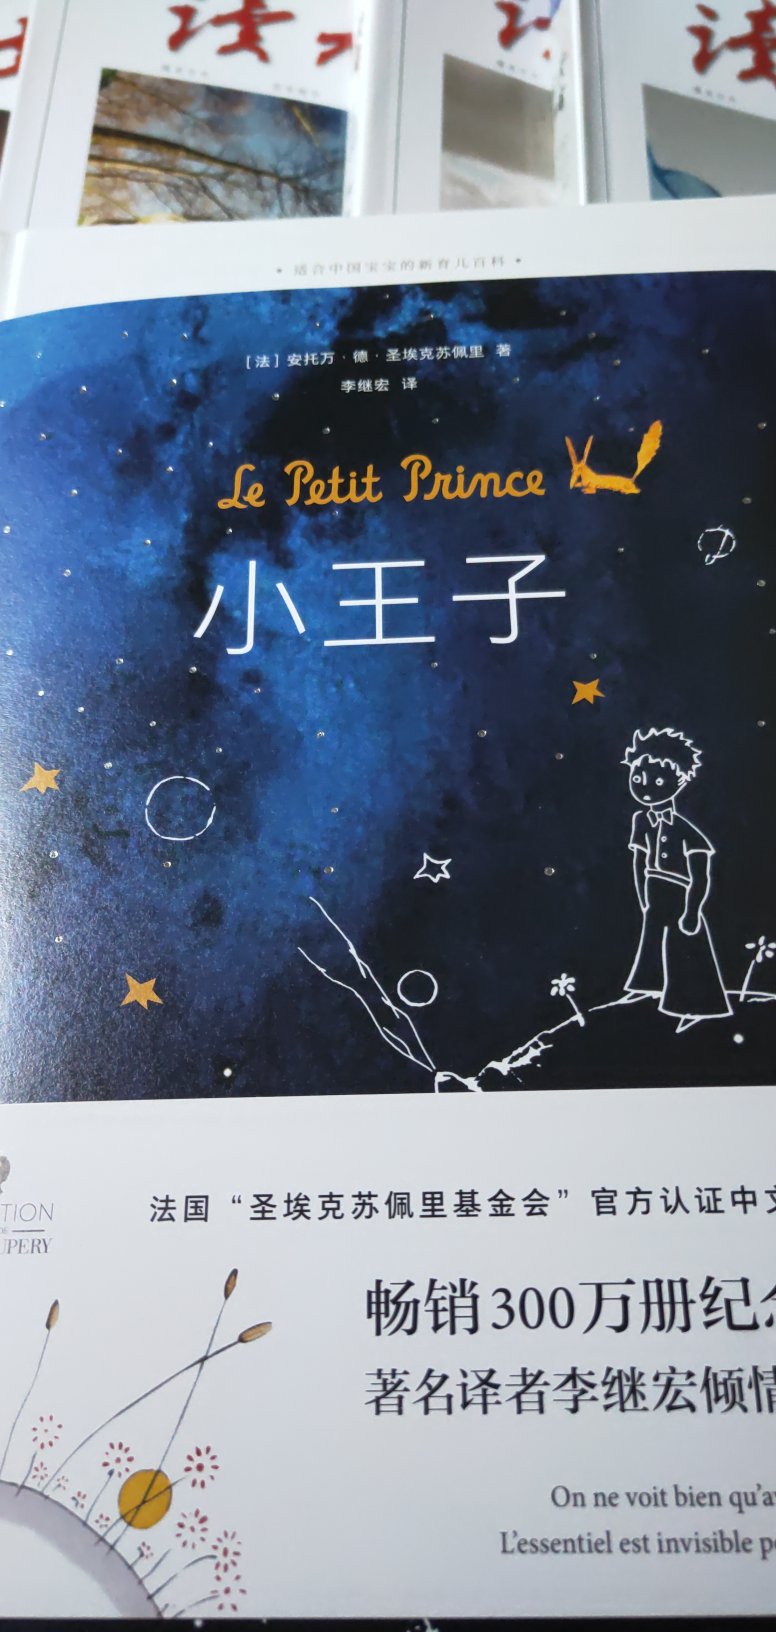 读
读
• 适合中国宝宝的新育儿百科 •
[法] 安托万·德·圣埃克苏佩里 著
李继宏 译
Le Petit Prince
小王子
法国“圣埃克苏佩里基金会”官方认证中文
TION
DE
UPERY
畅销300万册纪念
著名译者李继宏倾情
On ne voit bien qu'a
L'essentiel est invisible p